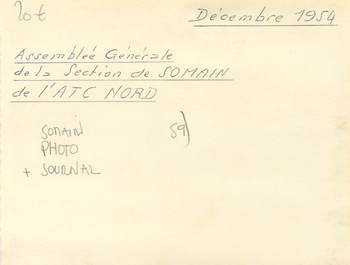 lot
Décembre 1954
Assemblée Générale
de la Section de SOMAIN
de l'ATC NORD
SOMAIN 59)
PHOTO
+ JOURNAL